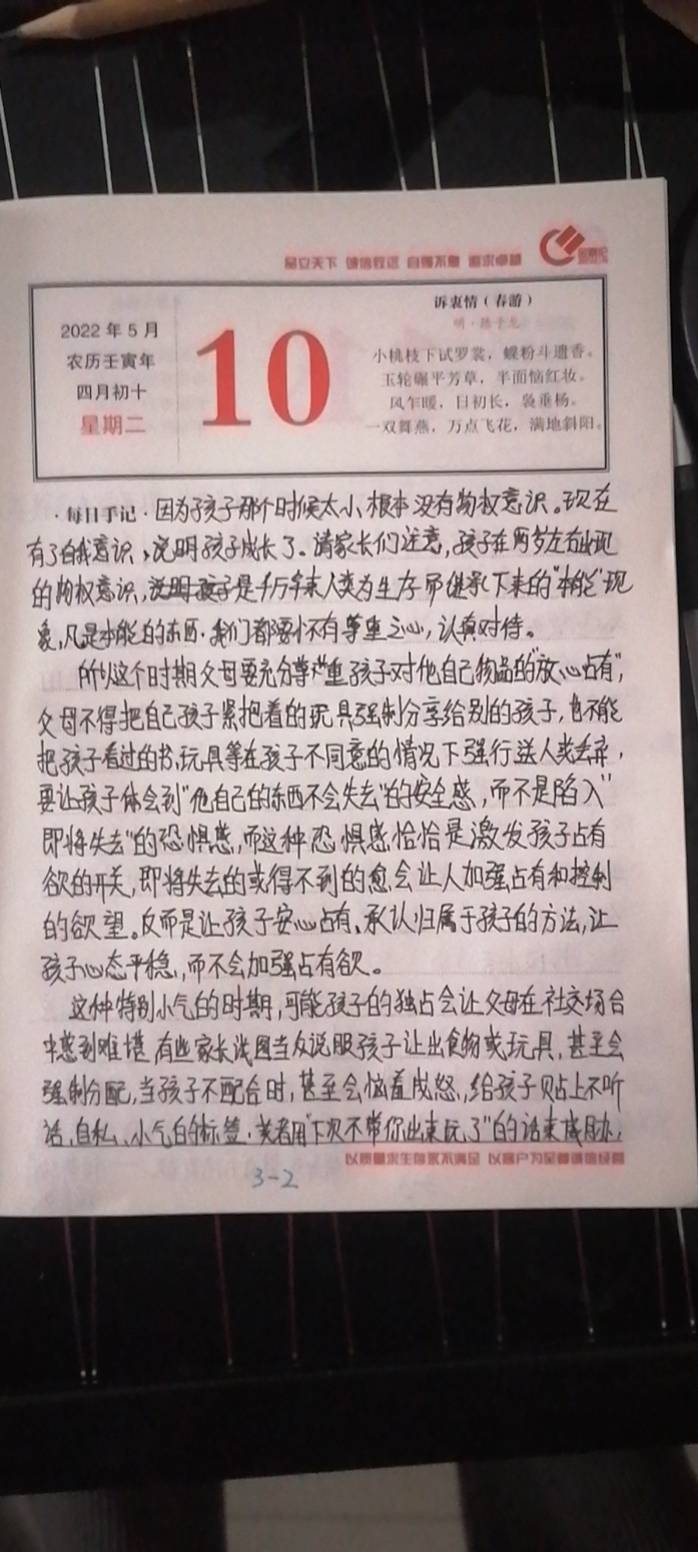 品立天下 诚信致远 自强不息 追求卓越
2022 年 5 月
农历壬寅年
四月初十
星期二
10
诉衷情（春游）
明·陈子龙
小桃枝下试罗裳，蝶粉斗遗香。
玉轮碾平芳草，半面恼红妆。
风乍暖，日初长，袅垂杨。
一双舞燕，万点飞花，满地斜阳。
·每日手记·因为孩子那个时候太小、根本没有物权意识。现在
有了自我意识，说明孩子成长了。请家长们注意，孩子在两岁左右出现
的物权意识，是千万年来人类为生存而继承下来的“本能”现
象，凡是本能的东西，我们都要怀有尊重之心，认真对待。
所以这个时期父母要充分尊重孩子对他自己物品的“放心占有”，
父母不得把自己孩子紧抱着的玩具强制分享给别的孩子，也不能
把孩子看过的书、玩具等在孩子不同意的情况下强行送人或丢弃，
要让孩子体会到“他自己的东西不会失去”的安全感，而不是陷入“
即将失去”的恐惧感，而这种恐惧感恰恰是激发孩子占有
欲的开关，即将失去的或得不到的愈会让人加强占有和控制
的欲望。反而是让孩子安心占有、承认归属于孩子的方法，让
孩子心态平稳，而不会加强占有欲。
这种特别小气的时期，可能孩子的独占会让父母在社交场合
中感到难堪，有些家长试图当众说服孩子让出食物或玩具，甚至会
强制分配，当孩子不配合时，甚至会恼羞成怒，给孩子贴上不听
话，自私、小气的标签，或者用“下次不带你出来玩了”的话来威胁，
以质量求生存永不满足 以客户为至尊诚信经营
3-2